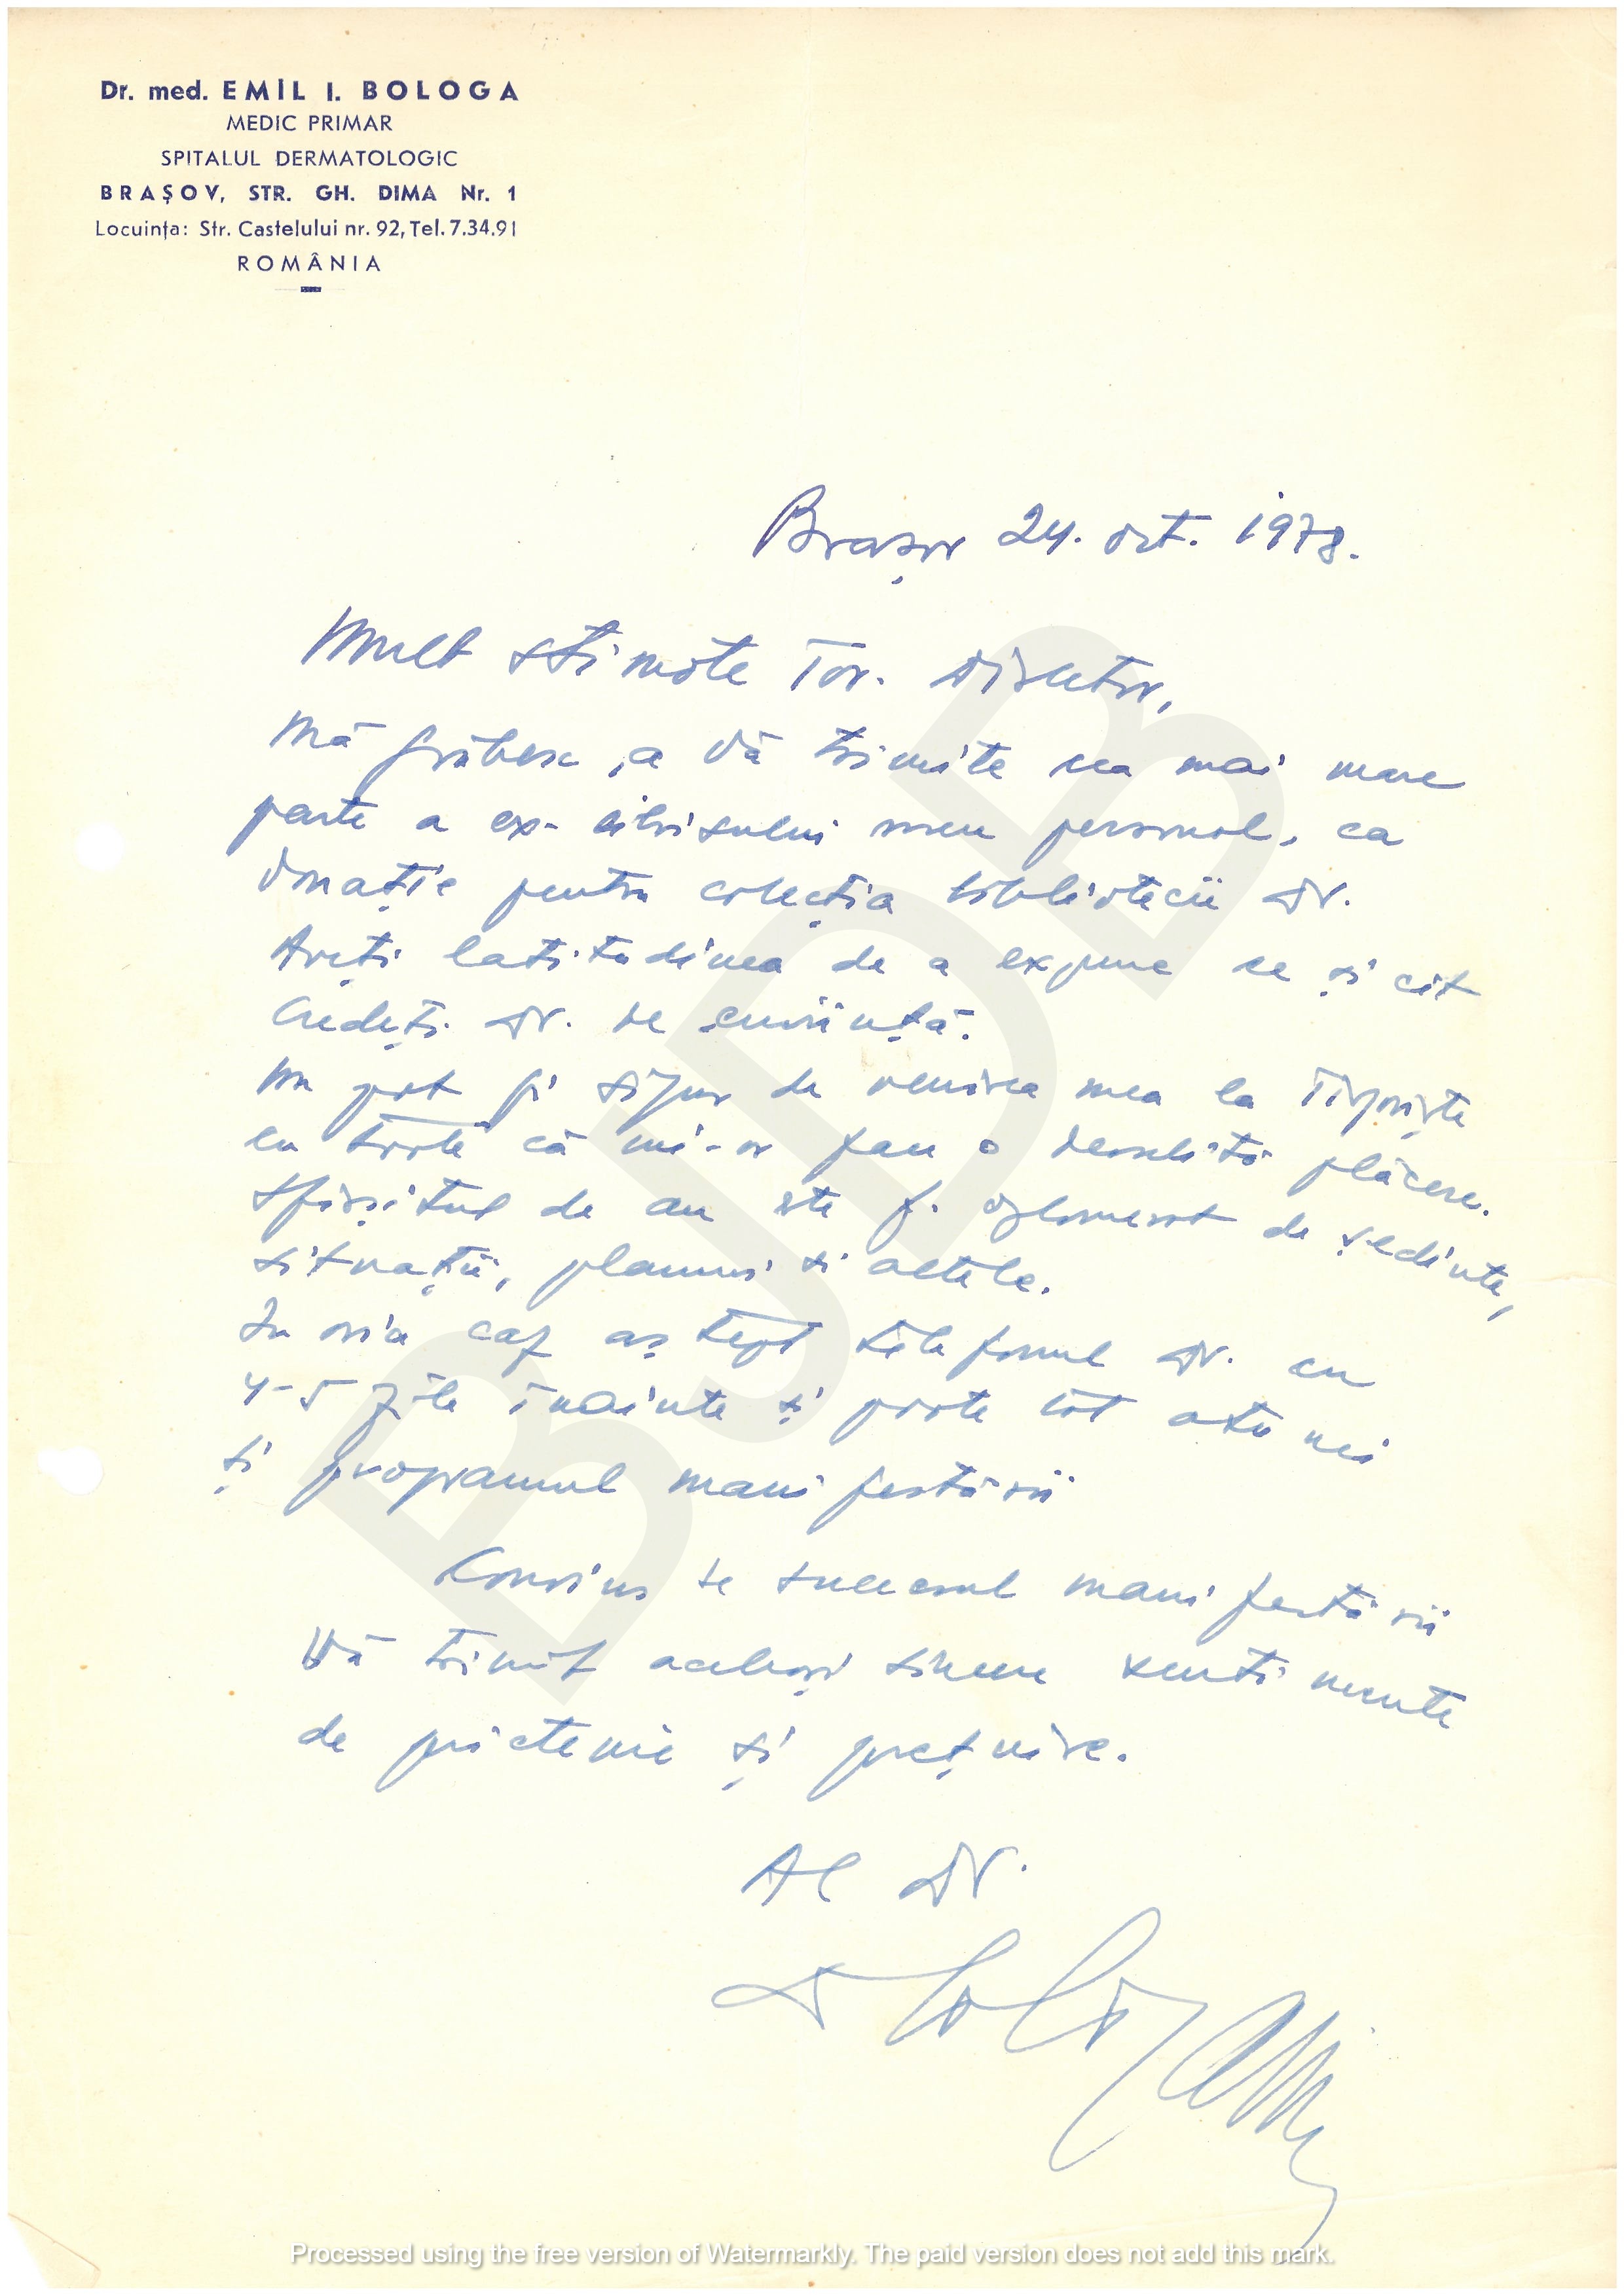 Dr. med. EMIL I. BOLOGA
MEDIC PRIMAR
SPITALUL DERMATOLOGIC
BRAȘOV, STR. GH. DIMA Nr. 1
Locuința: Str. Castelului nr. 92, Tel. 7.34.91
ROMÂNIA
Brașov 24. oct. 1978.
Mult stimate Tov. Director,
Mă grăbesc, a Vă trimite cea mai mare
parte a ex-librisului meu personal, ca
donație pentru colecția bibliotecii Dv.
Aveți latitudinea de a expune ce și cît
credeți Dv. de cuviință.
Nu pot fi sigur de venirea mea la Tîrgoviște
cu toate că mi-ar face o deosebită plăcere.
Sfîrșitul de an este f. aglomerat de ședințe,
situații, planuri și altele.
In orice caz aștept telefonul Dv. cu
4-5 zile înainte și poate tot atunci
și programul manifestării
Convins de succesul manifestării
Vă trimit aceleași sincere sentimente
de prietenie și prețuire.
Al Dv.
Bologa
BJDB
Processed using the free version of Watermarkly. The paid version does not add this mark.